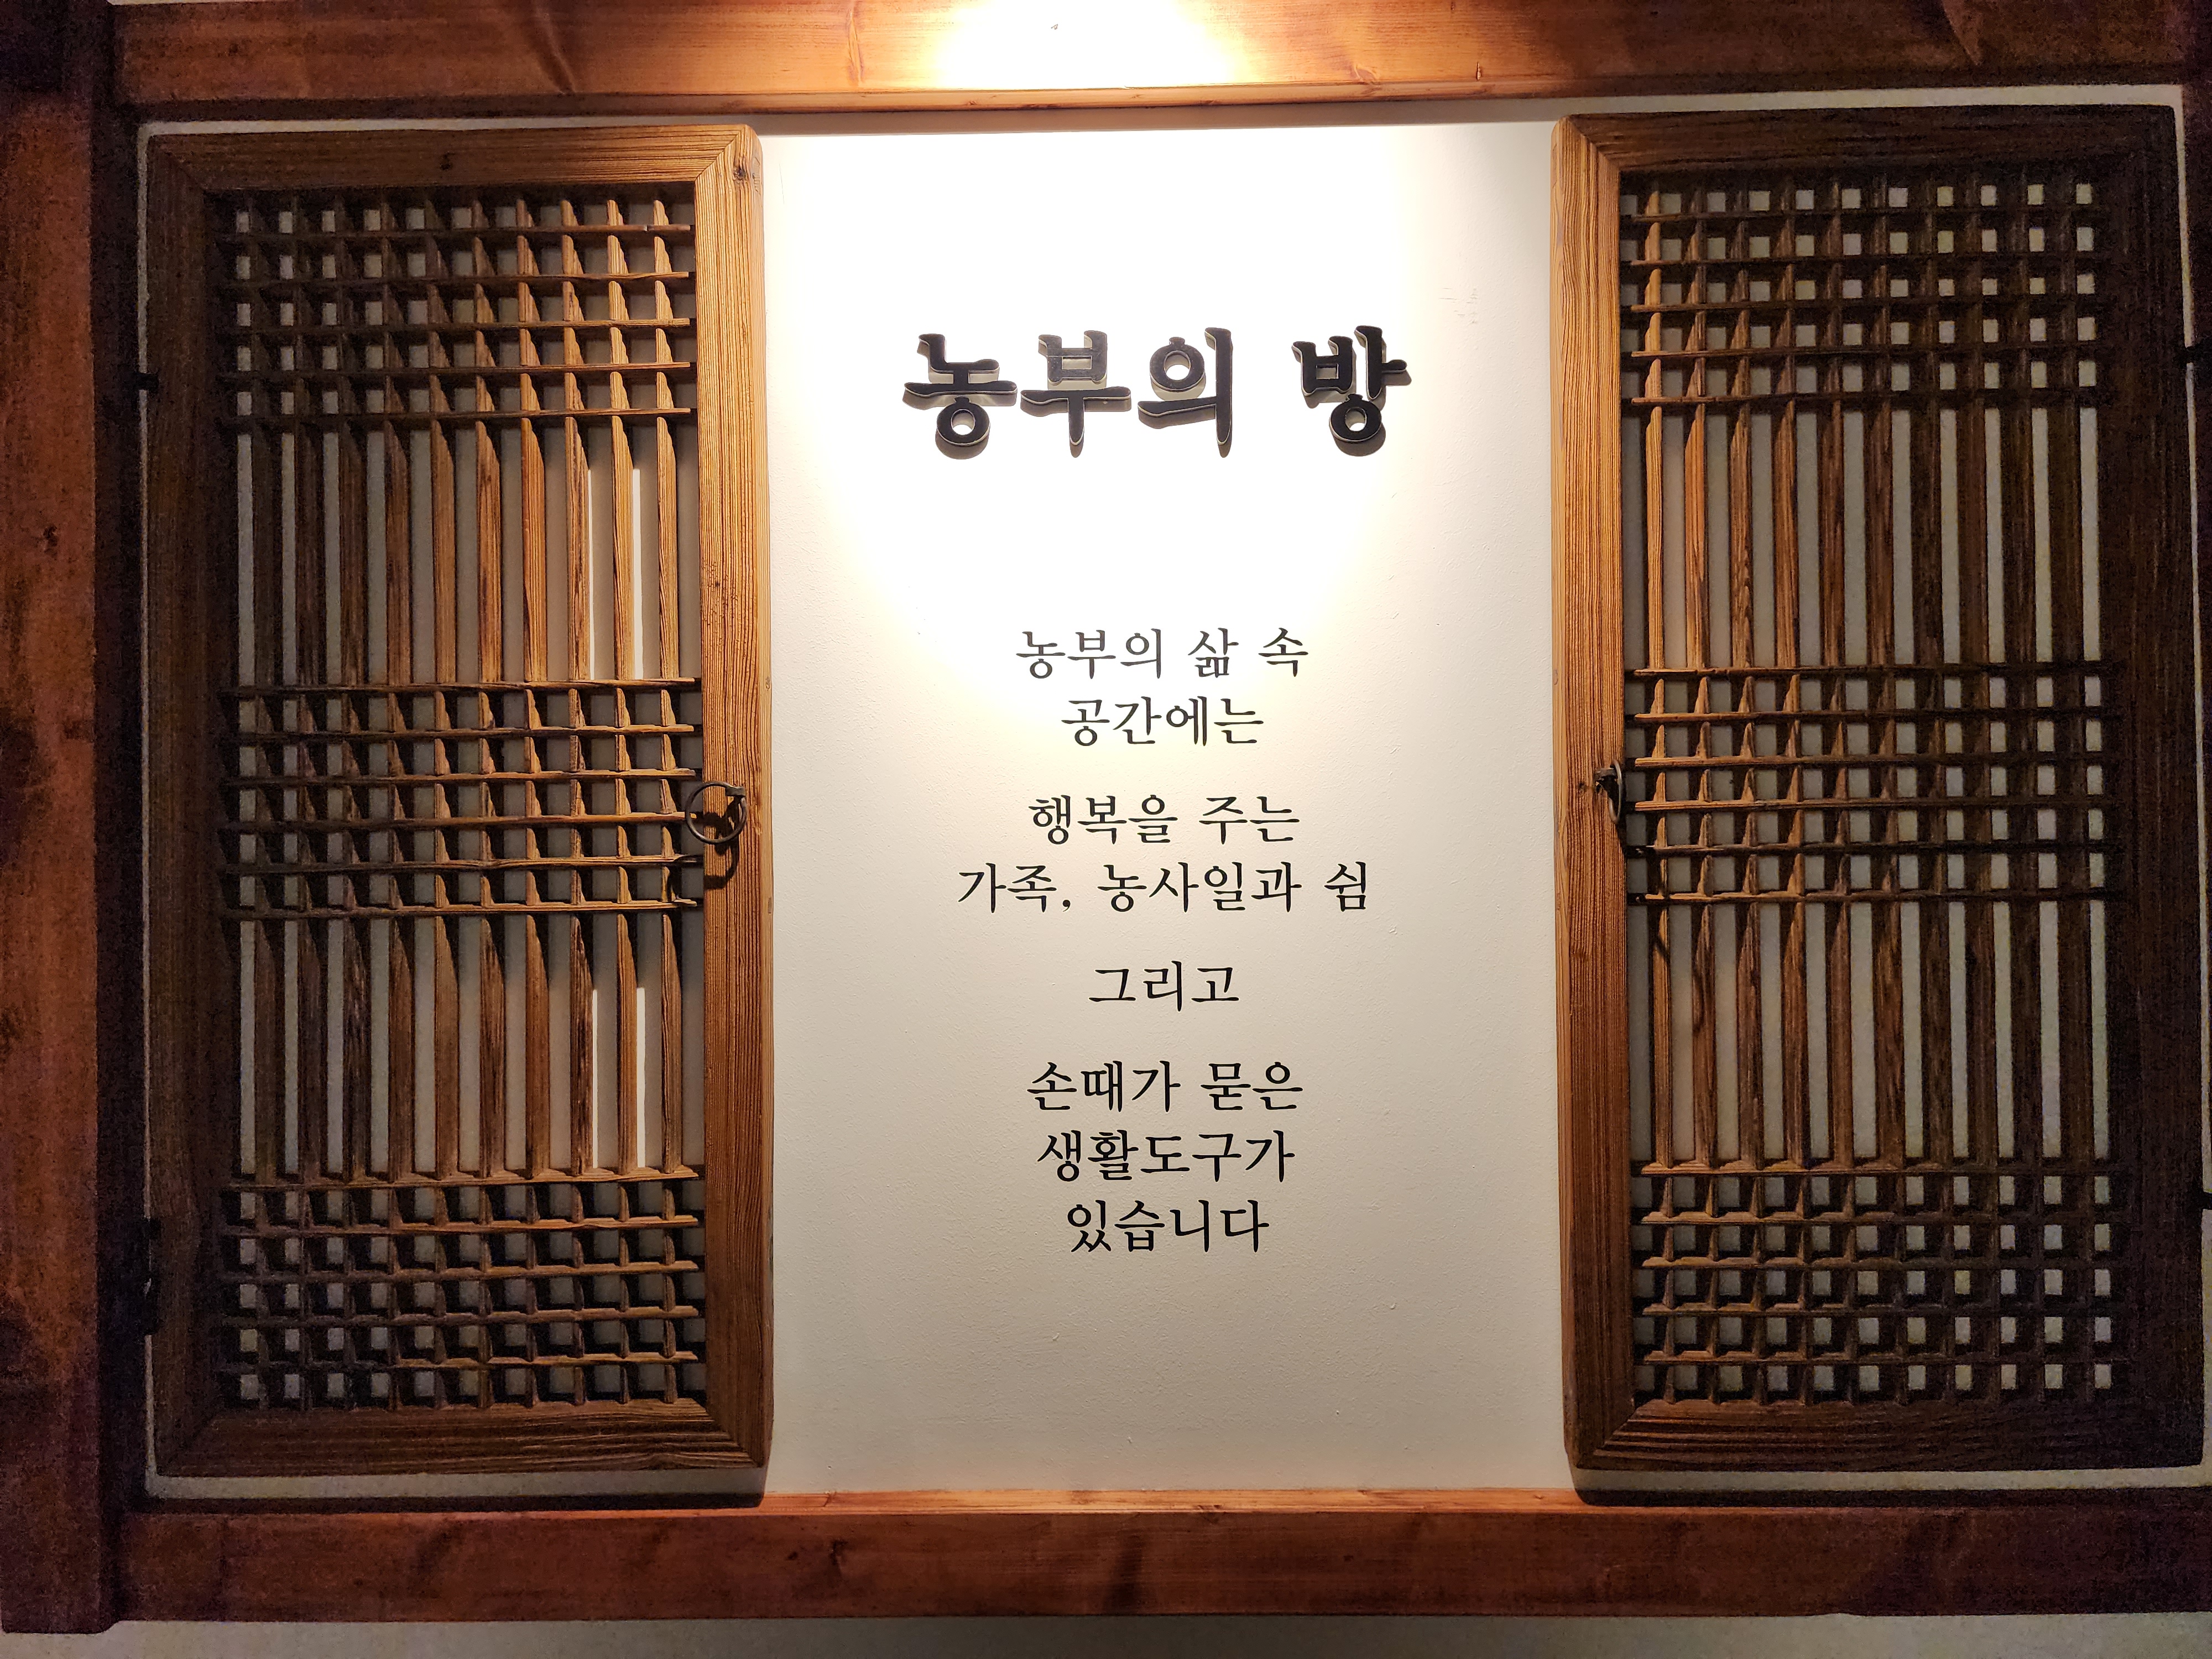 농부의 방
농부의 삶 속
공간에는
행복을 주는
가족, 농사일과 쉼
그리고
손때가 묻은
생활도구가
있습니다